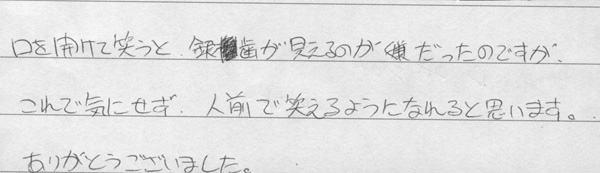 口を開けて笑うと、銀歯が見えるのが嫌だったのですが、
これで気にせず、人前で笑えるようになれると思います。
ありがとうございました。